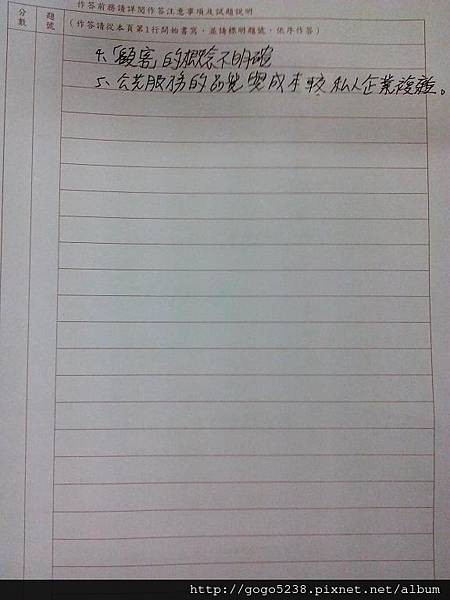 作答前務請詳閱作答注意事項及試題說明
分數
題號
(作答請從本頁第1行開始書寫，並請標明題號，依序作答)
4、「顧客」的概念不明確
5、公共服務的品質與成本較私人企業複雜。
http://gogo5238.pixnet.net/album